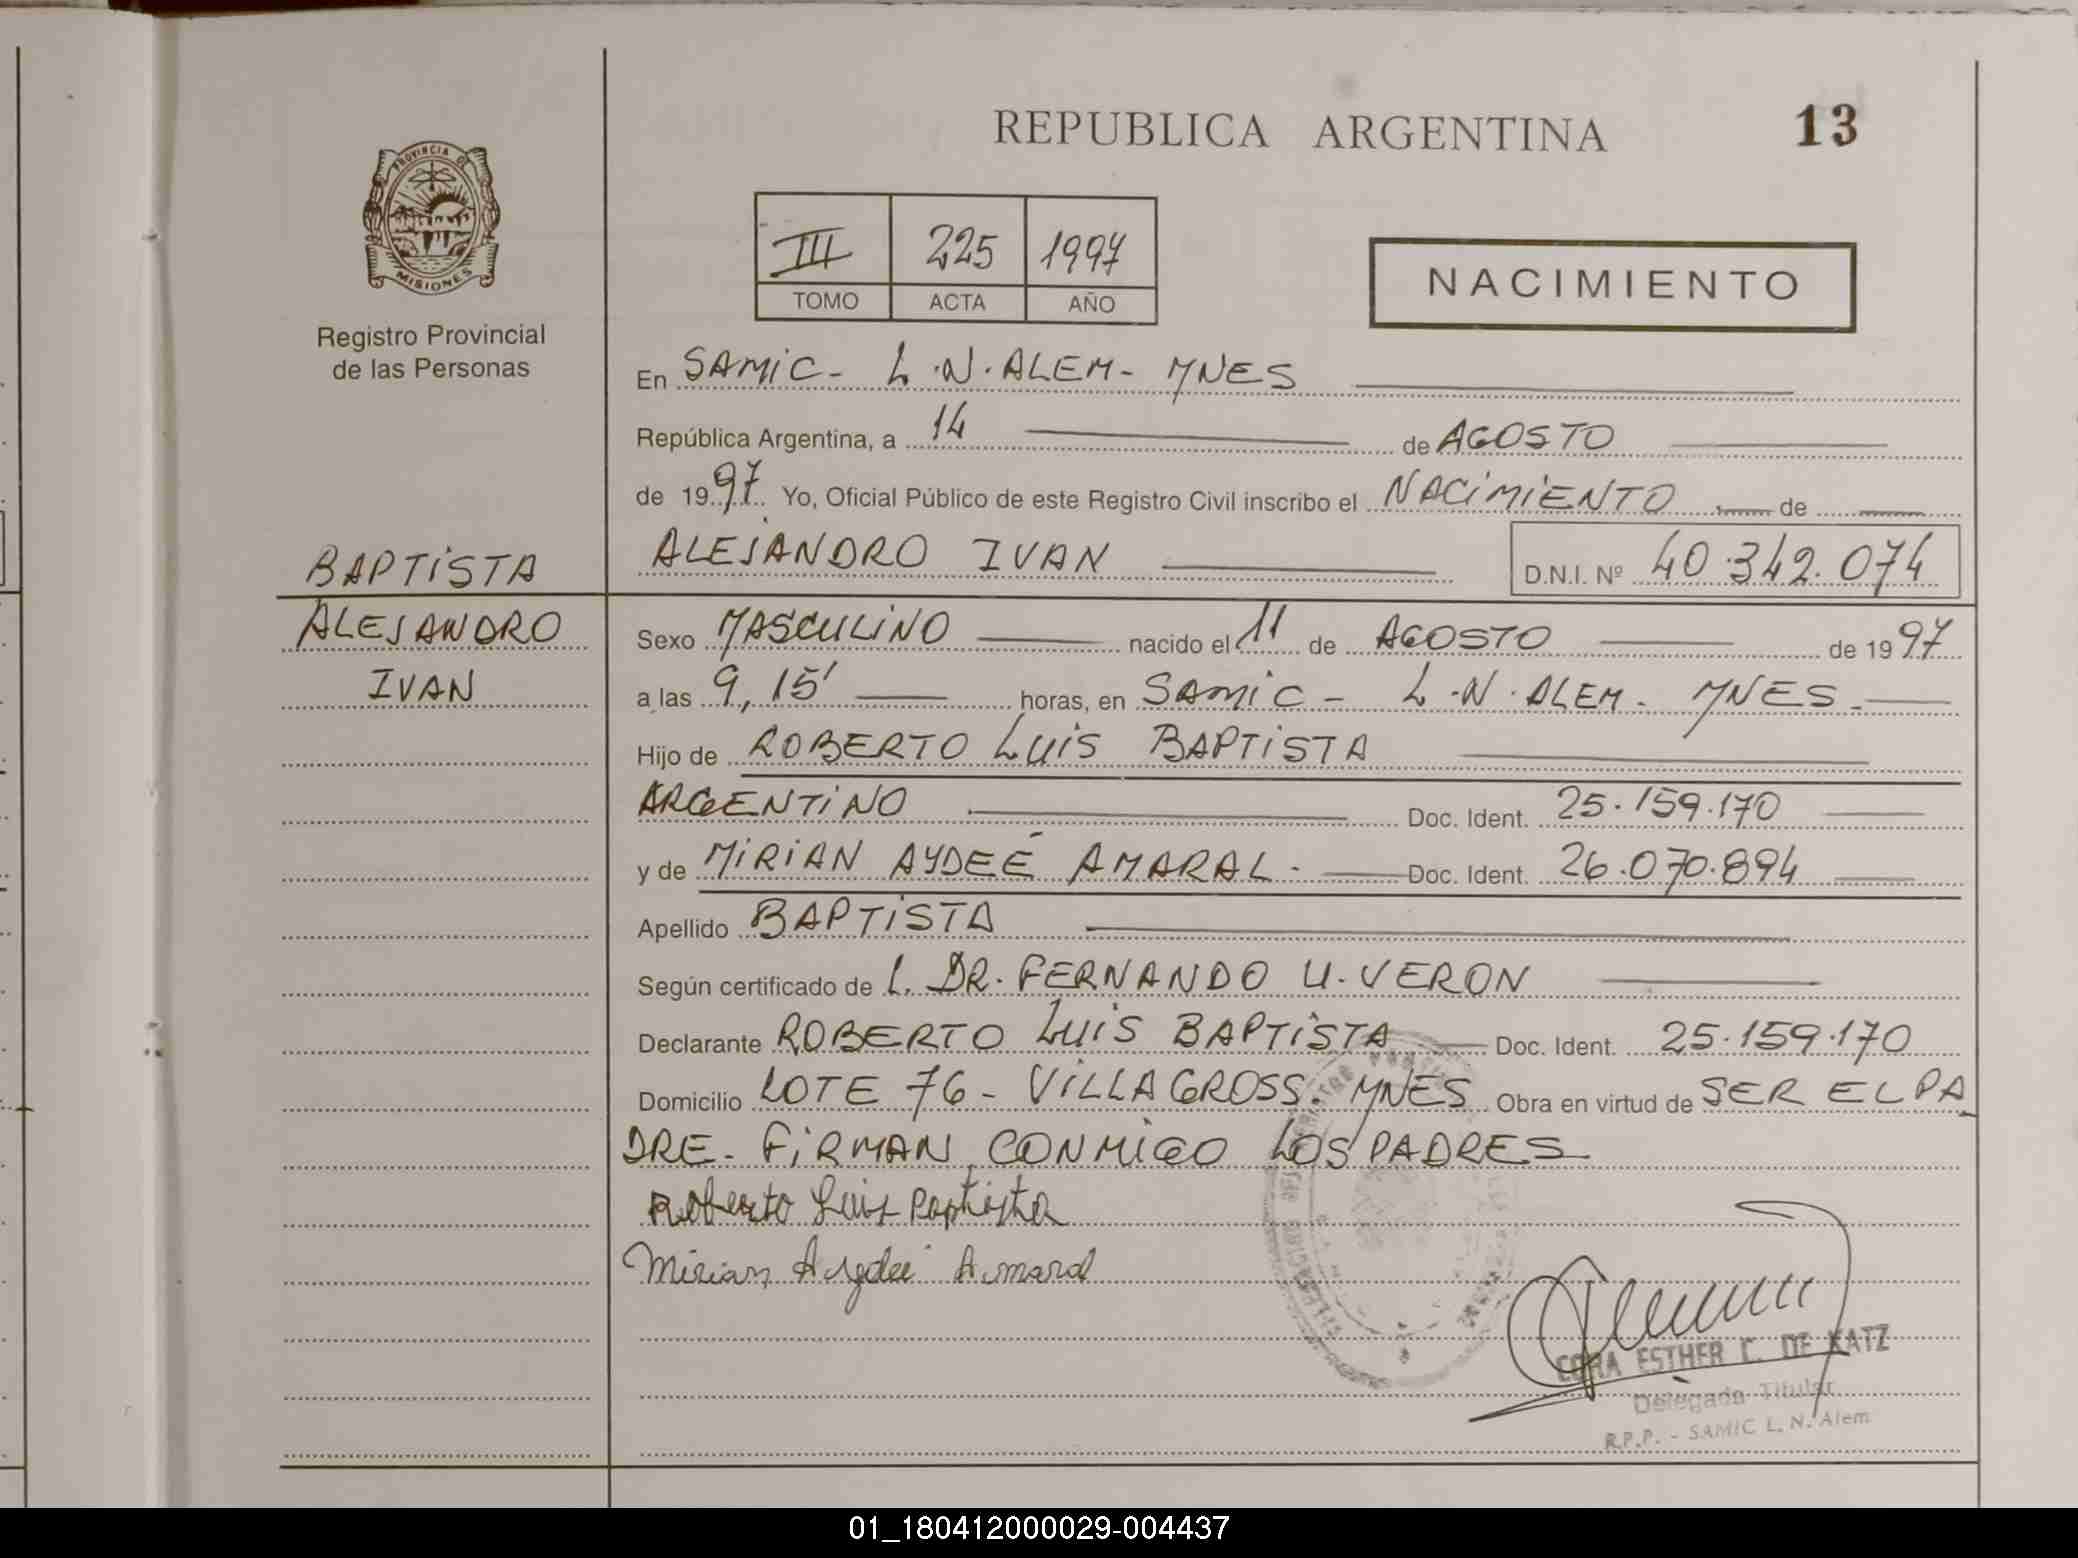 REPUBLICA ARGENTINA
13
PROVINCIA DE
MISIONES
Registro Provincial
de las Personas
III 225 1997
TOMO ACTA AÑO
NACIMIENTO
En SAMIC - L.N. ALEM - MNES
República Argentina, a 14 de AGOSTO
de 1997 Yo, Oficial Público de este Registro Civil inscribo el NACIMIENTO de
ALEJANDRO IVAN D.N.I. Nº 40.342.074
BAPTISTA
ALEJANDRO
IVAN
Sexo MASCULINO nacido el 11 de AGOSTO de 1997
a las 9,15' horas, en SAMIC - L.N. ALEM - MNES -
Hijo de ROBERTO LUIS BAPTISTA
ARGENTINO Doc. Ident. 25.159.170
y de MIRIAN AYDEÉ AMARAL - Doc. Ident. 26.070.894
Apellido BAPTISTA
Según certificado de L. DR. FERNANDO U. VERON
Declarante ROBERTO LUIS BAPTISTA Doc. Ident. 25.159.170
Domicilio LOTE 76 - VILLA GROSS. MNES Obra en virtud de SER EL PA
DRE - FIRMAN CONMIGO LOS PADRES
Roberto Luis Baptista
Mirian Aydeé Amaral
CORA ESTHER C. DE KATZ
Delegada Titular
R.P.P. - SAMIC L. N. Alem
01_180412000029-004437